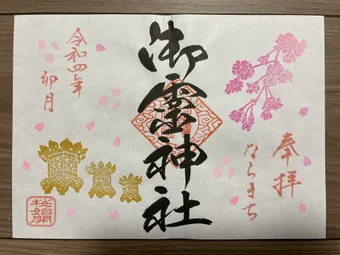 奉拝
ならまち
御霊神社
令和四年
卯月
桜始開